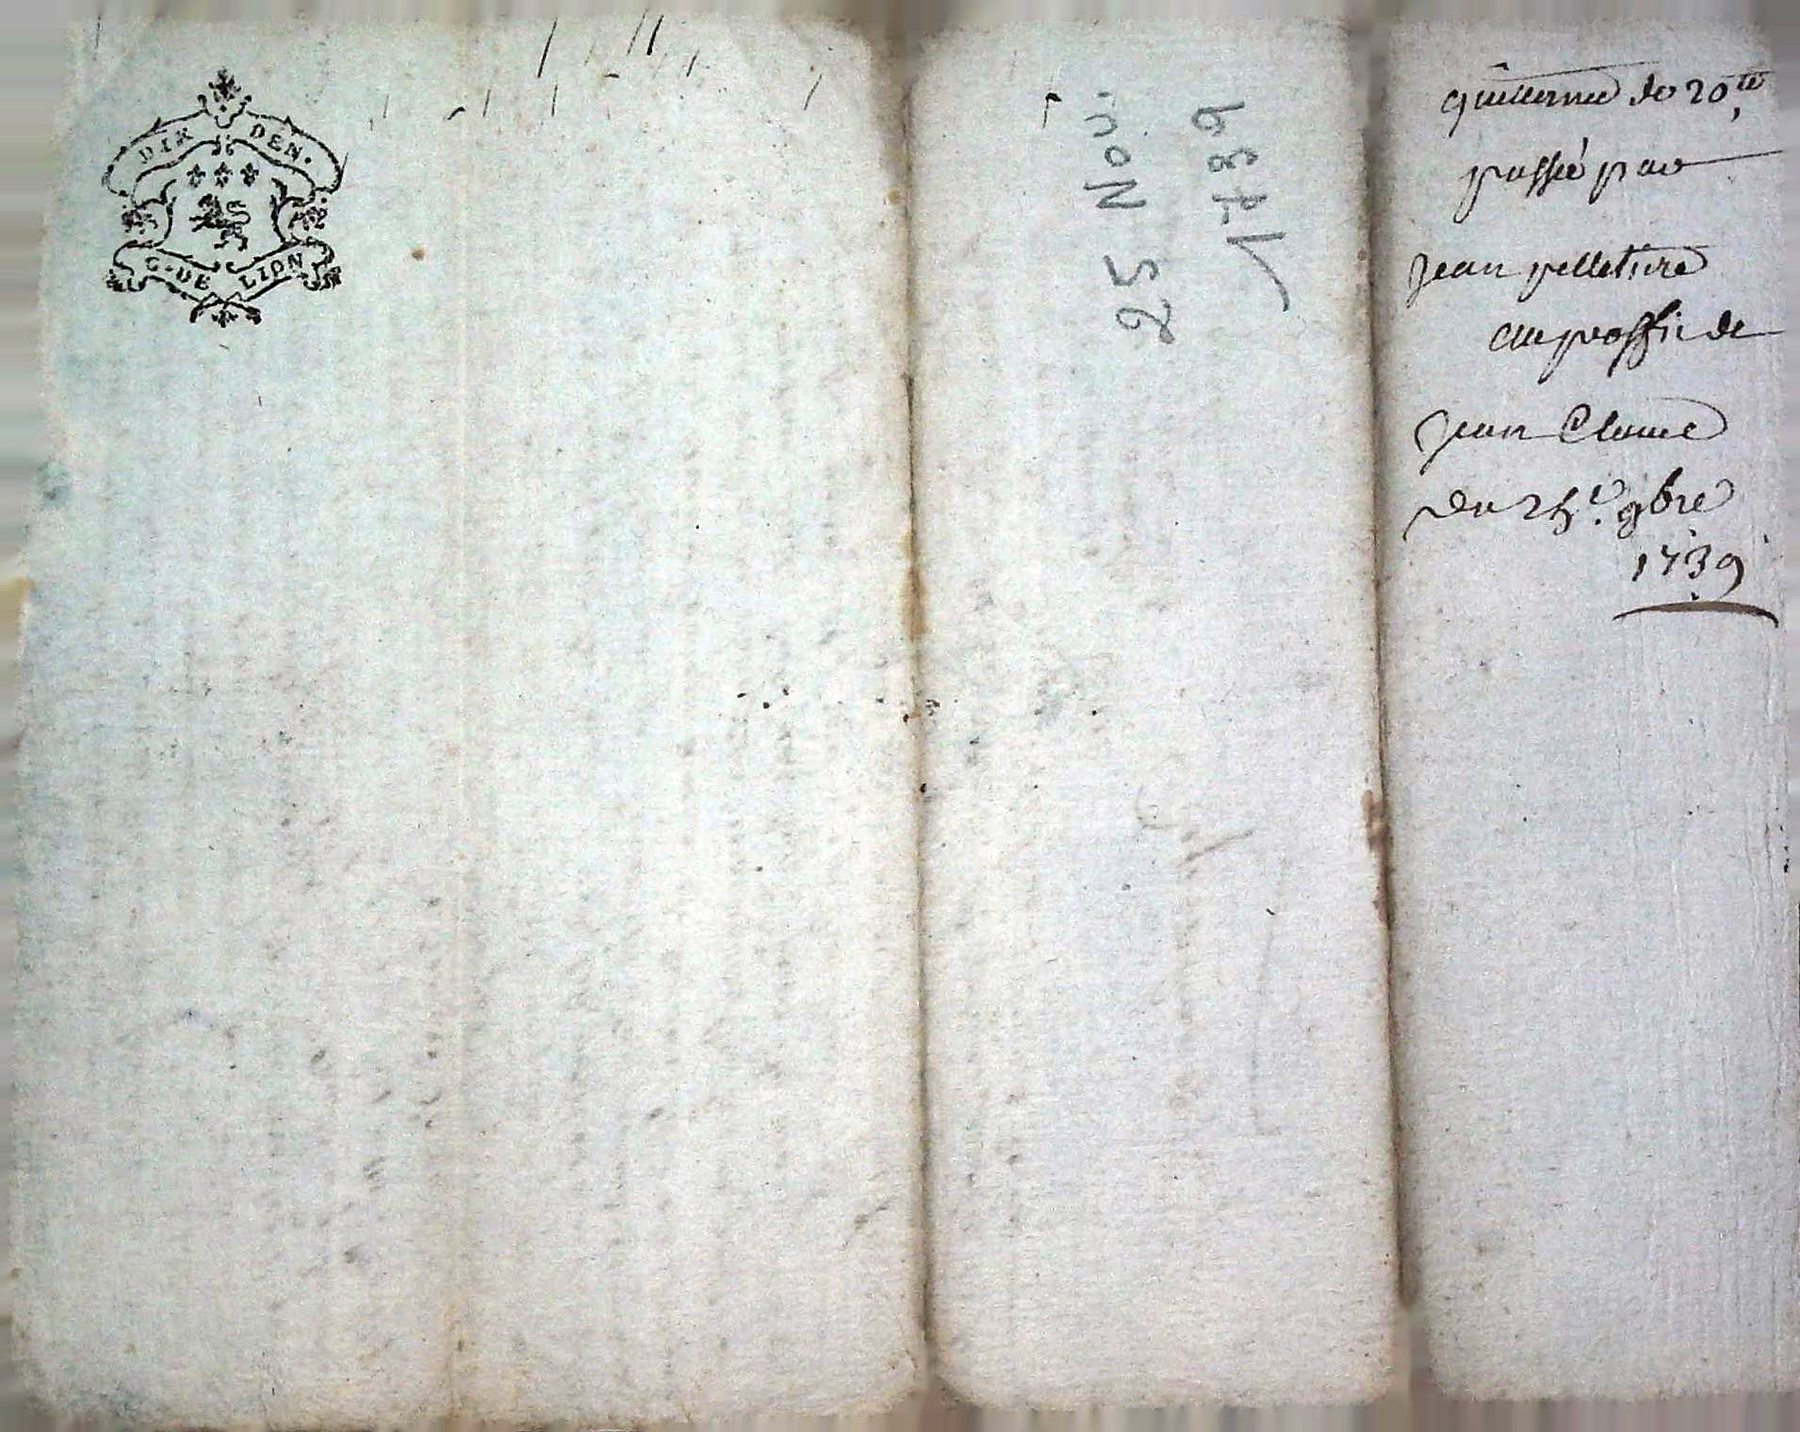 DIX DEN.
G. DE LION
25 Nov.
1739
de 20te
passé par
jean pelletire
au proffit de
jean Claude
du 25e. 9bre
1739